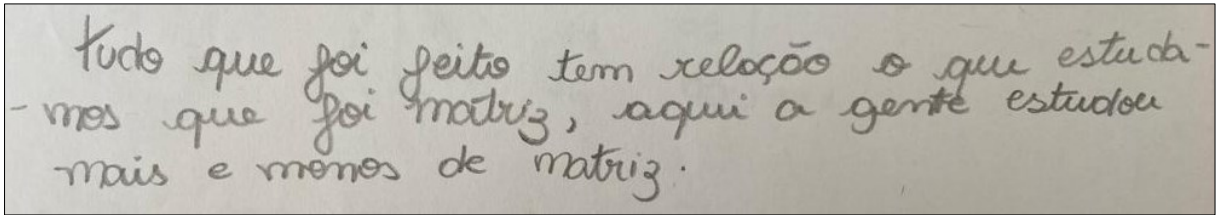 tudo que foi feito tem relação o que estuda-
-mos que foi matriz, aqui a gente estudou
mais e menos de matriz.